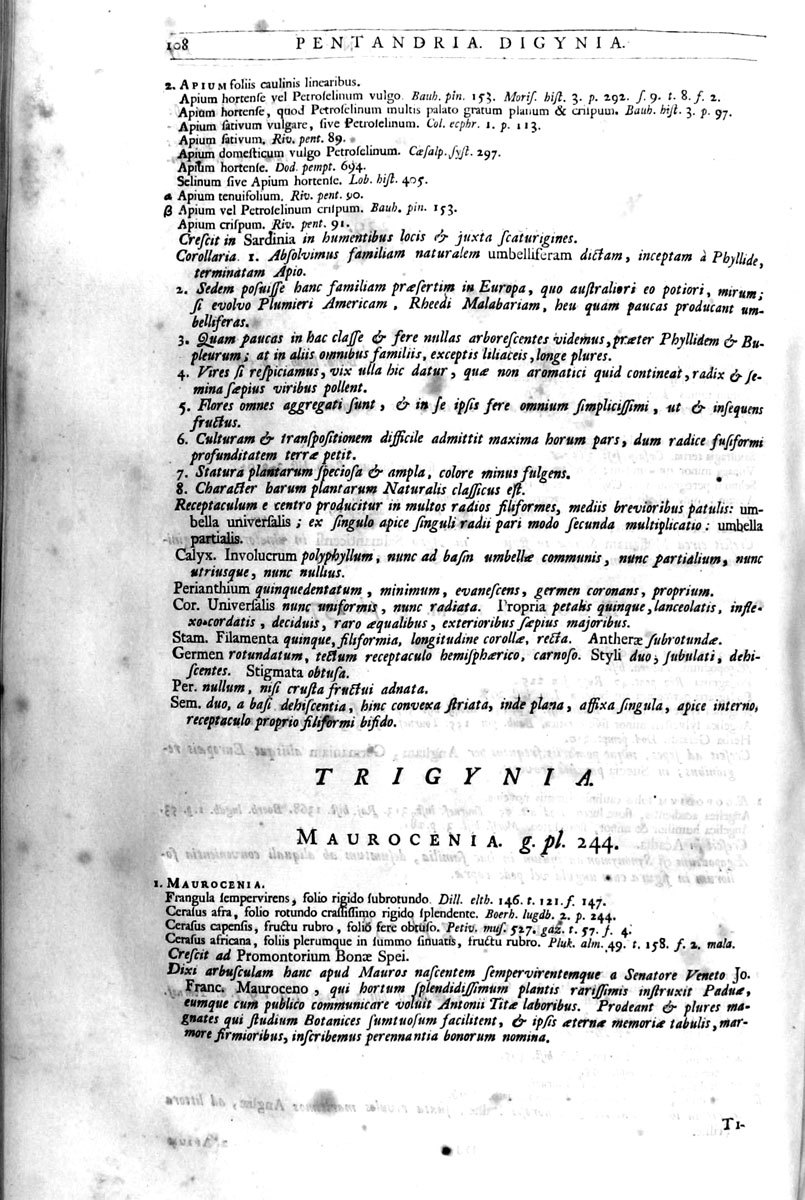 108 PENTANDRIA. DIGYNIA.
2. APIUM foliis caulinis linearibus.
Apium hortense vel Petroſelinum vulgo. Bauh. pin. 153. Moriſ. hiſt. 3. p. 292. ſ. 9. t. 8. f. 2.
Apium hortenſe, quod Petroſelinum multis palato gratum planum & criſpum. Bauh. hiſt. 3. p. 97.
Apium ſativum vulgare, ſive Petroſelinum. Col. ecphr. 1. p. 113.
Apium ſativum. Riv. pent. 89.
Apium domeſticum vulgo Petroſelinum. Cæſalp. ſyſt. 297.
Apium hortenſe. Dod. pempt. 694.
Selinum ſive Apium hortenſe. Lob. hiſt. 405.
α Apium tenuifolium. Riv. pent. 90.
β Apium vel Petroſelinum criſpum. Bauh. pin. 153.
Apium criſpum. Riv. pent. 91.
Creſcit in Sardinia in humentibus locis & juxta ſcaturigines.
Corollaria. 1. Abſolvimus familiam naturalem umbelliferam dictam, inceptam à Phyllide,
terminatam Apio.
2. Sedem poſuiſſe hanc familiam præſertim in Europa, quo auſtraliori eo potiori, mirum;
ſi evolvo Plumieri Americam, Rheedi Malabariam, heu quam paucas producant um-
belliferas.
3. Quam paucas in hac claſſe & fere nullas arboreſcentes videmus, præter Phyllidem & Bu-
pleurum; at in aliis omnibus familiis, exceptis liliaceis, longe plures.
4. Vires ſi reſpiciamus, vix ulla hic datur, quæ non aromatici quid contineat, radix & ſe-
mina ſæpius viribus pollent.
5. Flores omnes aggregati ſunt, & in ſe ipſis fere omnium ſimpliciſſimi, ut & inſequens
fructus.
6. Culturam & tranſpoſitionem difficile admittit maxima horum pars, dum radice fuſiformi
profunditatem terræ petit.
7. Statura plantarum ſpecioſa & ampla, colore minus fulgens.
8. Character harum plantarum Naturalis claſſicus eſt.
Receptaculum e centro producitur in multos radios filiformes, mediis brevioribus patulis: um-
bella univerſalis; ex ſingulo apice ſinguli radii pari modo ſecunda multiplicatio: umbella
partialis.
Calyx. Involucrum polyphyllum, nunc ad baſin umbellæ communis, nunc partialium, nunc
utriusque, nunc nullius.
Perianthium quinquedentatum, minimum, evaneſcens, germen coronans, proprium.
Cor. Univerſalis nunc uniformis, nunc radiata. Propria petalis quinque, lanceolatis, infle-
xo-cordatis, deciduis, raro æqualibus, exterioribus ſæpius majoribus.
Stam. Filamenta quinque, filiformia, longitudine corollæ, recta. Antheræ ſubrotundæ.
Germen rotundatum, tectum receptaculo hemiſphærico, carnoſo. Styli duo, ſubulati, dehi-
ſcentes. Stigmata obtuſa.
Per. nullum, niſi cruſta fructui adnata.
Sem. duo, a baſi dehiſcentia, hinc convexa ſtriata, inde plana, affixa ſingula, apice interno,
receptaculo proprio filiformi bifido.
TRIGYNIA.
MAUROCENIA. g. pl. 244.
1. MAUROCENIA.
Frangula ſempervirens, folio rigido ſubrotundo. Dill. elth. 146. t. 121. f. 147.
Ceraſus afra, folio rotundo craſſiſſimo rigido ſplendente. Boerh. lugdb. 2. p. 244.
Ceraſus capenſis, fructu rubro, folio fere obtuſo. Petiv. muſ. 527. gaz. t. 57. f. 4.
Ceraſus africana, foliis plerumque in ſummo ſinuatis, fructu rubro. Pluk. alm. 49. t. 158. f. 2. mala.
Creſcit ad Promontorium Bonæ Spei.
Dixi arbuſculam hanc apud Mauros naſcentem ſempervirentemque a Senatore Veneto Jo.
Franc. Mauroceno, qui hortum ſplendidiſſimum plantis rariſſimis inſtruxit Paduæ,
eumque cum publico communicare voluit Antonii Titæ laboribus. Prodeant & plures ma-
gnates qui ſtudium Botanices ſumtuoſum facilitent, & ipſis æternæ memoriæ tabulis, mar-
more firmioribus, inſcribemus perennantia bonorum nomina.
TI-